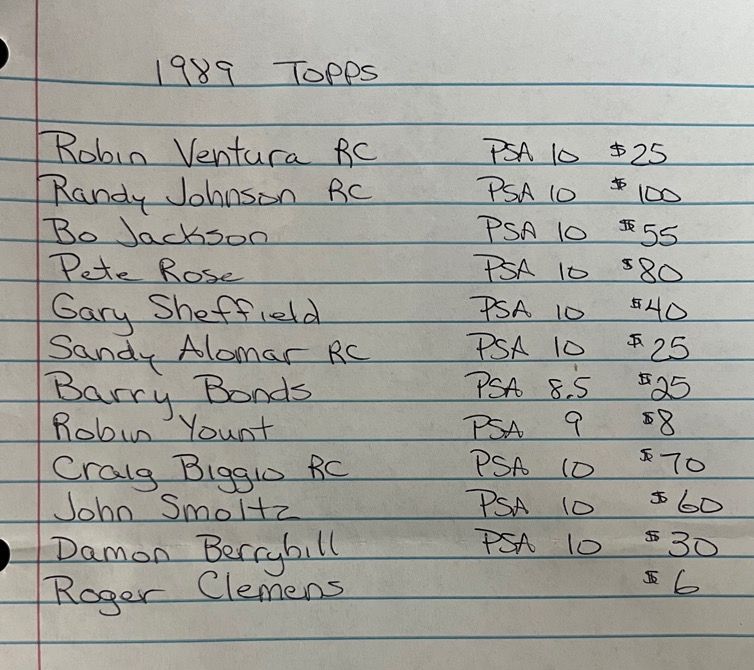 1989 Topps
Robin Ventura RC PSA 10 $25
Randy Johnson RC PSA 10 $100
Bo Jackson PSA 10 $55
Pete Rose PSA 10 $80
Gary Sheffield PSA 10 $40
Sandy Alomar RC PSA 10 $25
Barry Bonds PSA 8.5 $25
Robin Yount PSA 9 $8
Craig Biggio RC PSA 10 $70
John Smoltz PSA 10 $60
Damon Berryhill PSA 10 $30
Roger Clemens $6